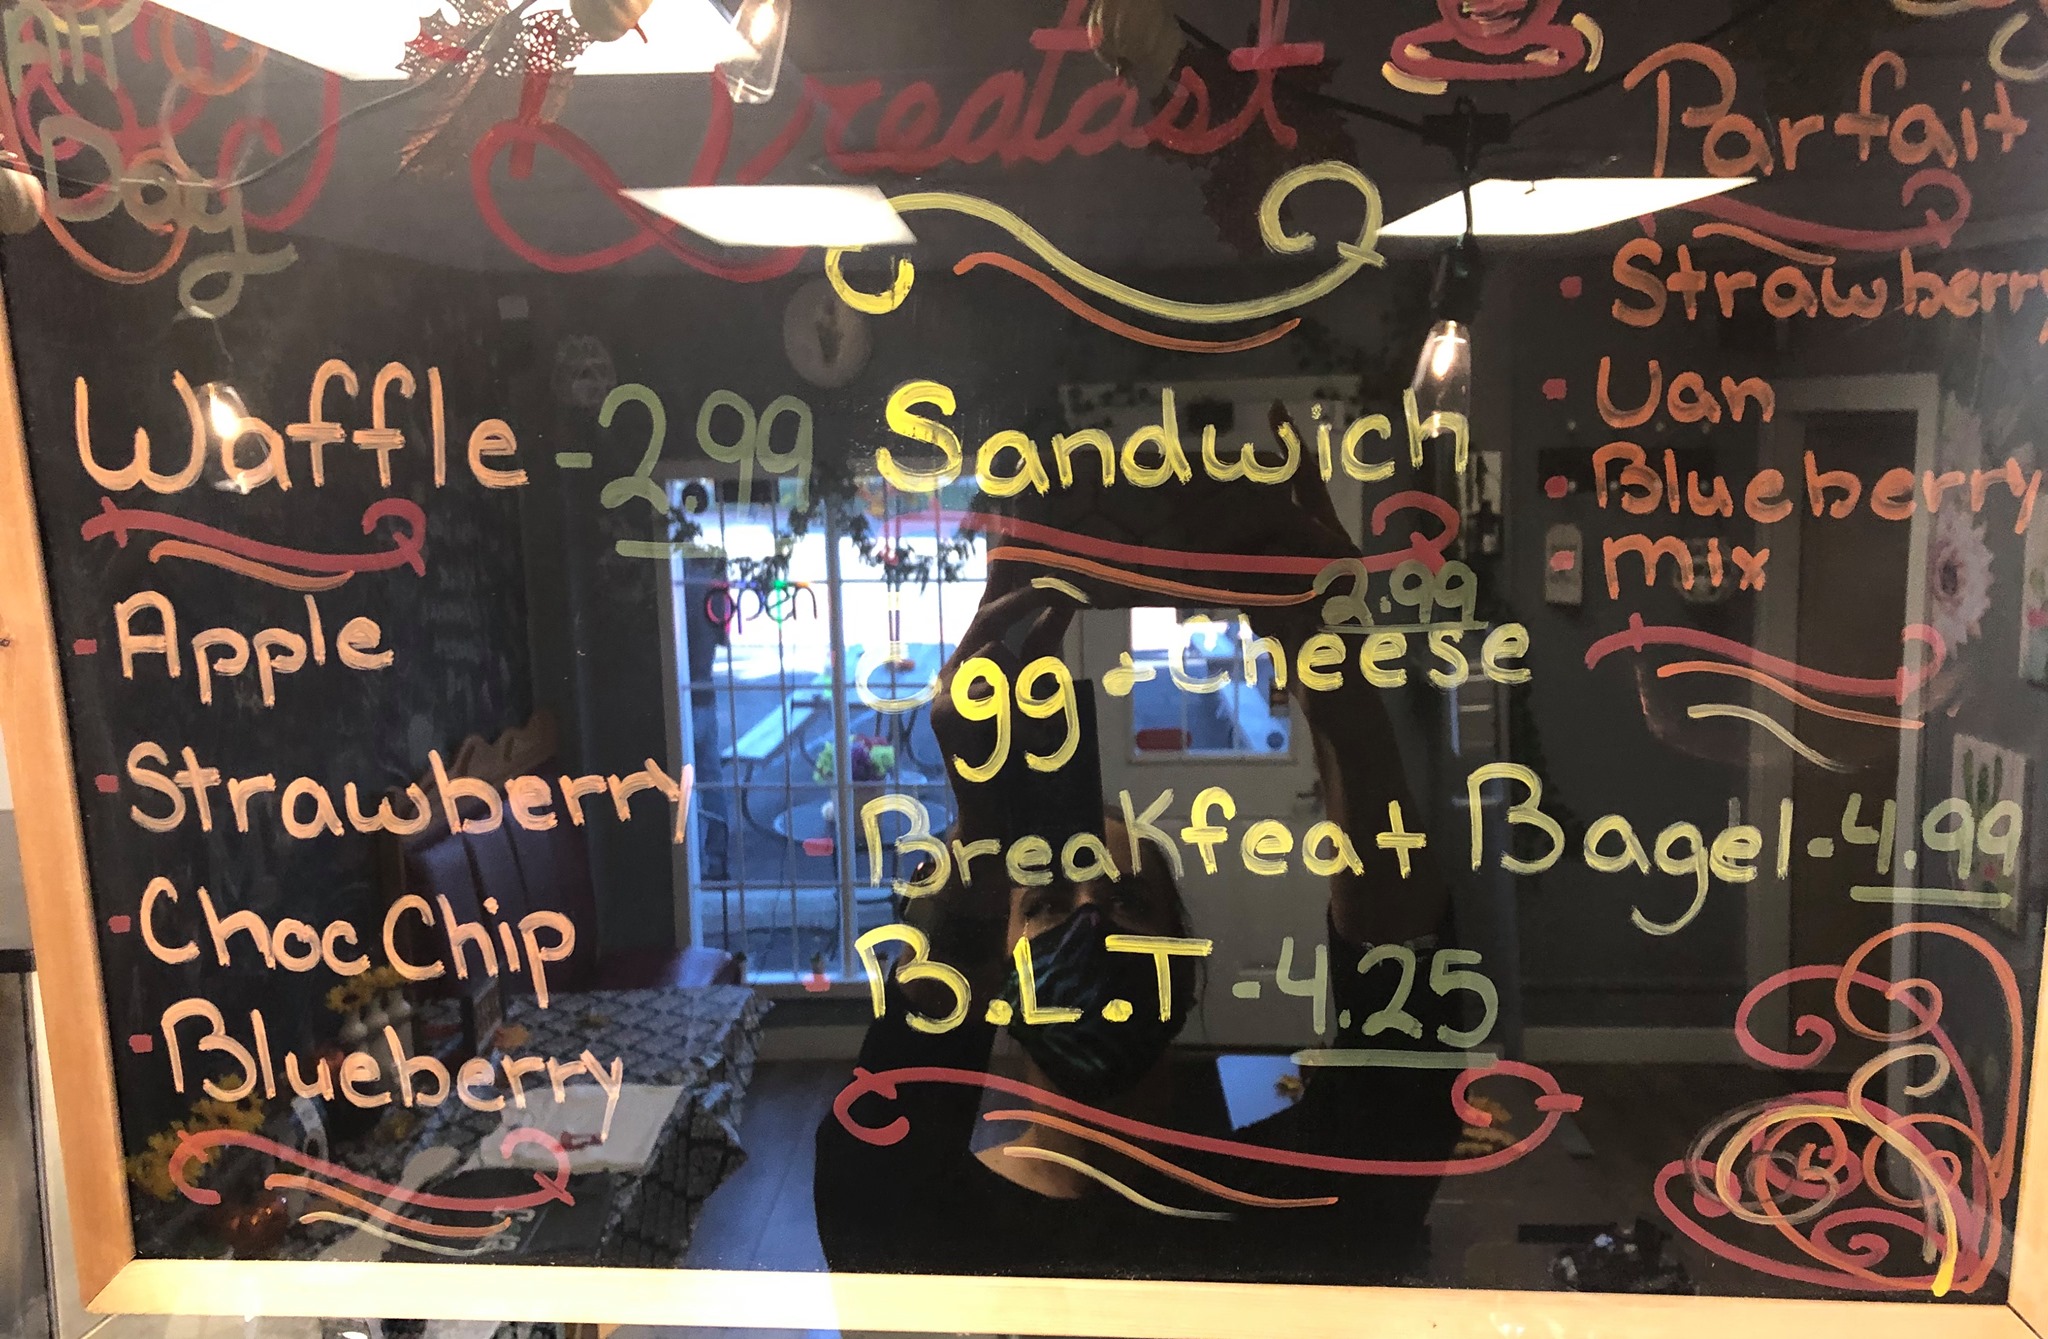 All
Day
Breatast
Waffle -2.99
Apple
Strawberry
Choc Chip
Blueberry
Sandwich
2.99
Egg + Cheese
Breakfeat Bagel - 4.99
B.L.T - 4.25
Parfait
Strawberry
Van
Blueberry
Mix
open